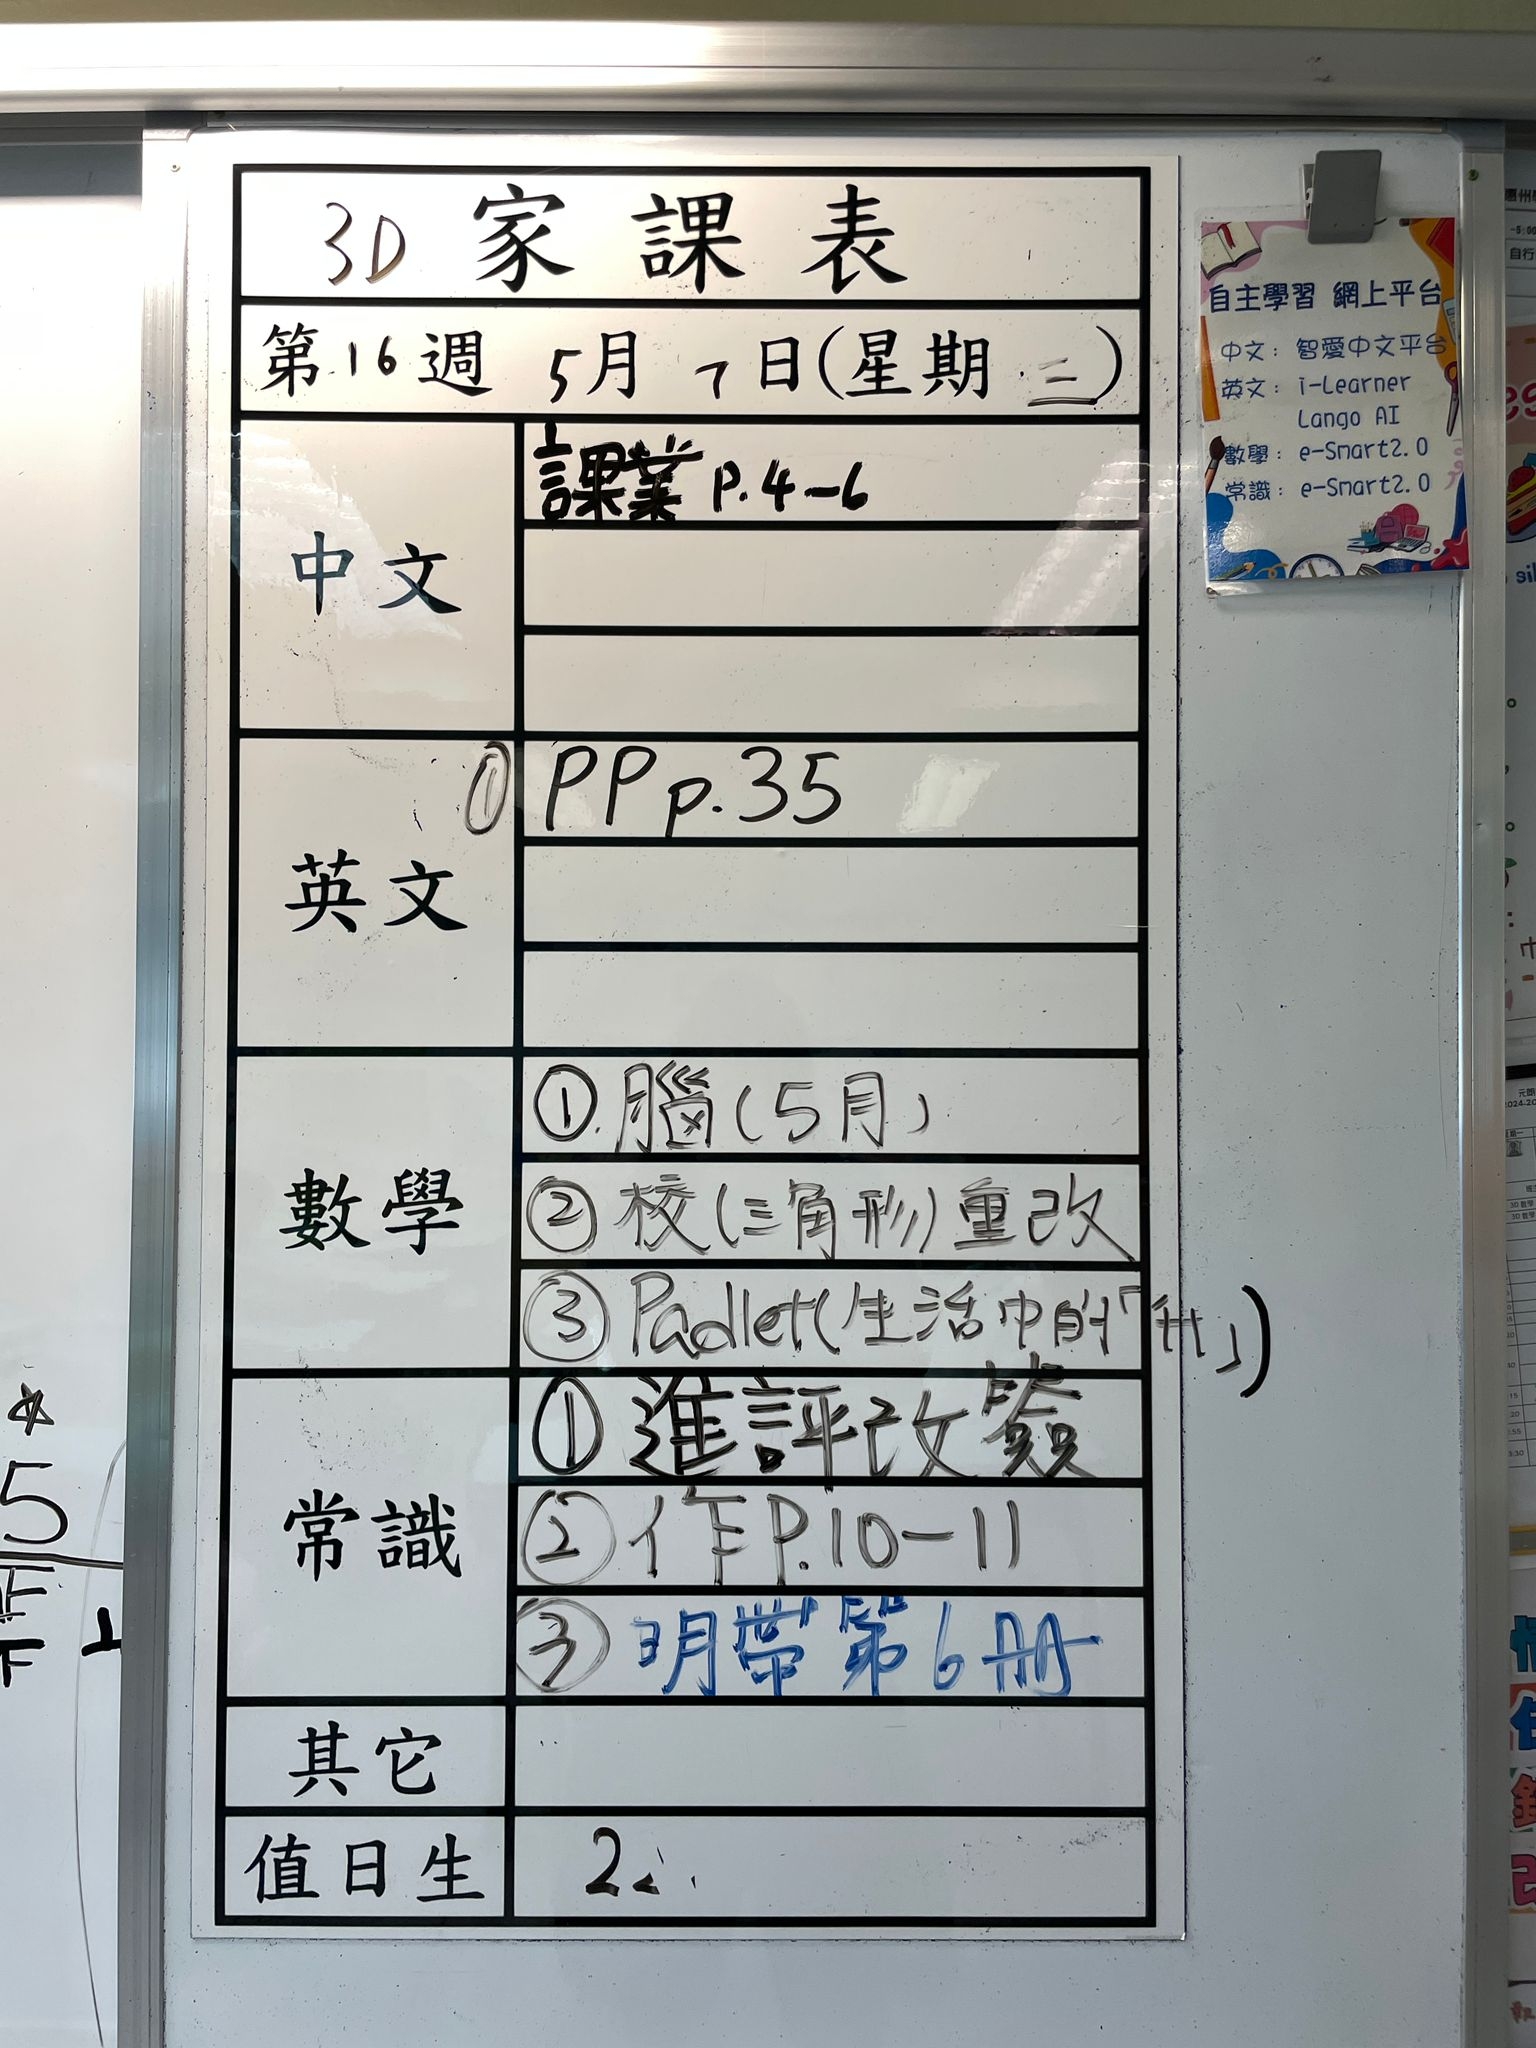 3D 家課表
第16週 5月7日(星期三)
中文
課業 P.4-6
英文
① PP p.35
數學
① 腦(5月)
② 校(三角形)重改
③ Padlet(生活中的「升」)
常識
① 進評改簽
② 作P.10-11
③ 明帶第6冊
其它
值日生
自主學習 網上平台
中文: 智愛中文平台
英文: i-Learner
Lango AI
數學: e-Smart2.0
常識: e-Smart2.0
5